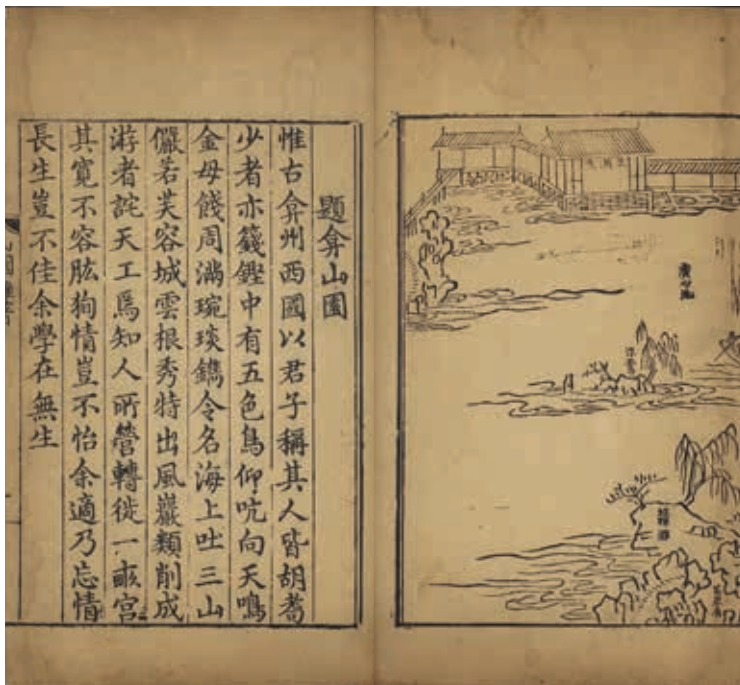 題弇山園
惟古弇州西國以君子稱其人皆胡耇
少者亦籛鏗中有五色鳥仰吭向天鳴
金母餞周滿琬琰鐫令名海上吐三山
儼若芙容城雲根秀特出風巖類削成
游者詫天工焉知人所營轉徙一畝宮
其寬不容肱狥情豈不怡余適乃忘情
長生豈不佳余學在無生